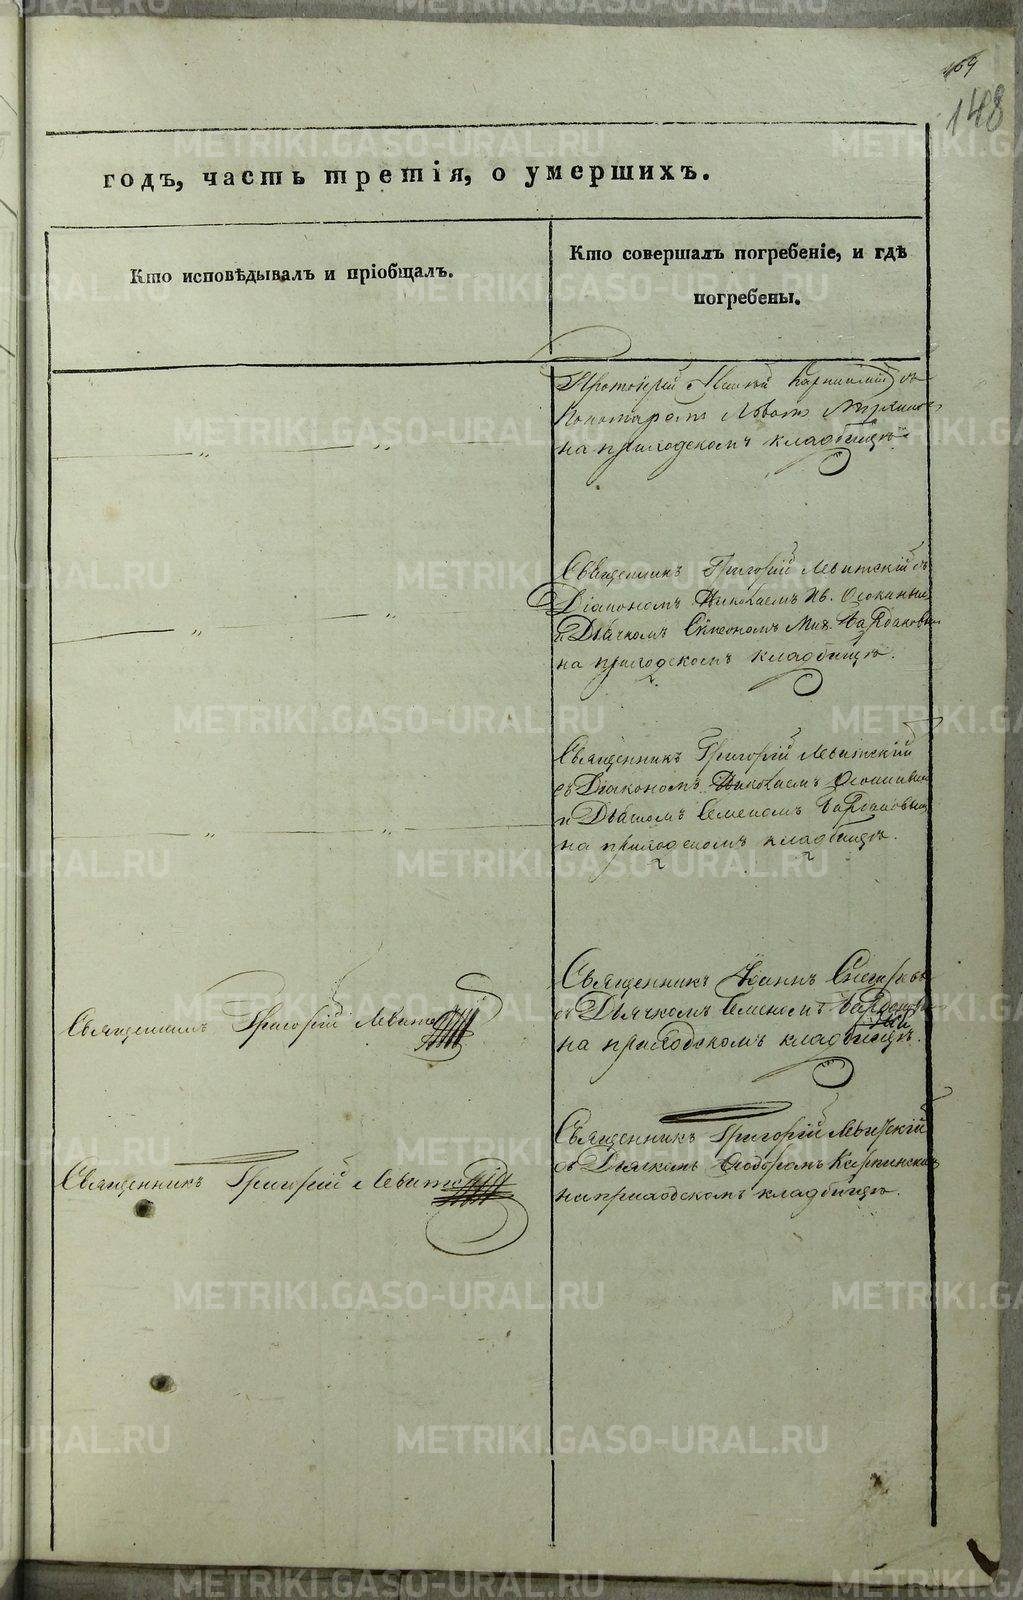 148
годъ, часть третія, о умершихъ.
Кто исповѣдывалъ и пріобщалъ.
Кто совершалъ погребеніе, и гдѣ
погребены.
Протоіерей Карпинскій съ
Пономаремъ Львомъ
на приходскомъ кладбищѣ.
Священникъ Григорій Левитскій съ
Діакономъ Николаемъ Ив. Осокинымъ
и Дьячкомъ Симеономъ Мих.
на приходскомъ кладбищѣ.
Священникъ Григорій Левитскій
съ Діакономъ Николаемъ
и Дьячкомъ Семеномъ
на приходскомъ кладбищѣ.
Священникъ Григорій
Священникъ Іоаннъ
съ Дьячкомъ Семеномъ
на приходскомъ кладбищѣ.
Священникъ Григорій
Священникъ Григорій Левитскій
съ Дьячкомъ Ѳеодоромъ Карпинскимъ
на приходскомъ кладбищѣ.
METRIKI.GASO-URAL.RU